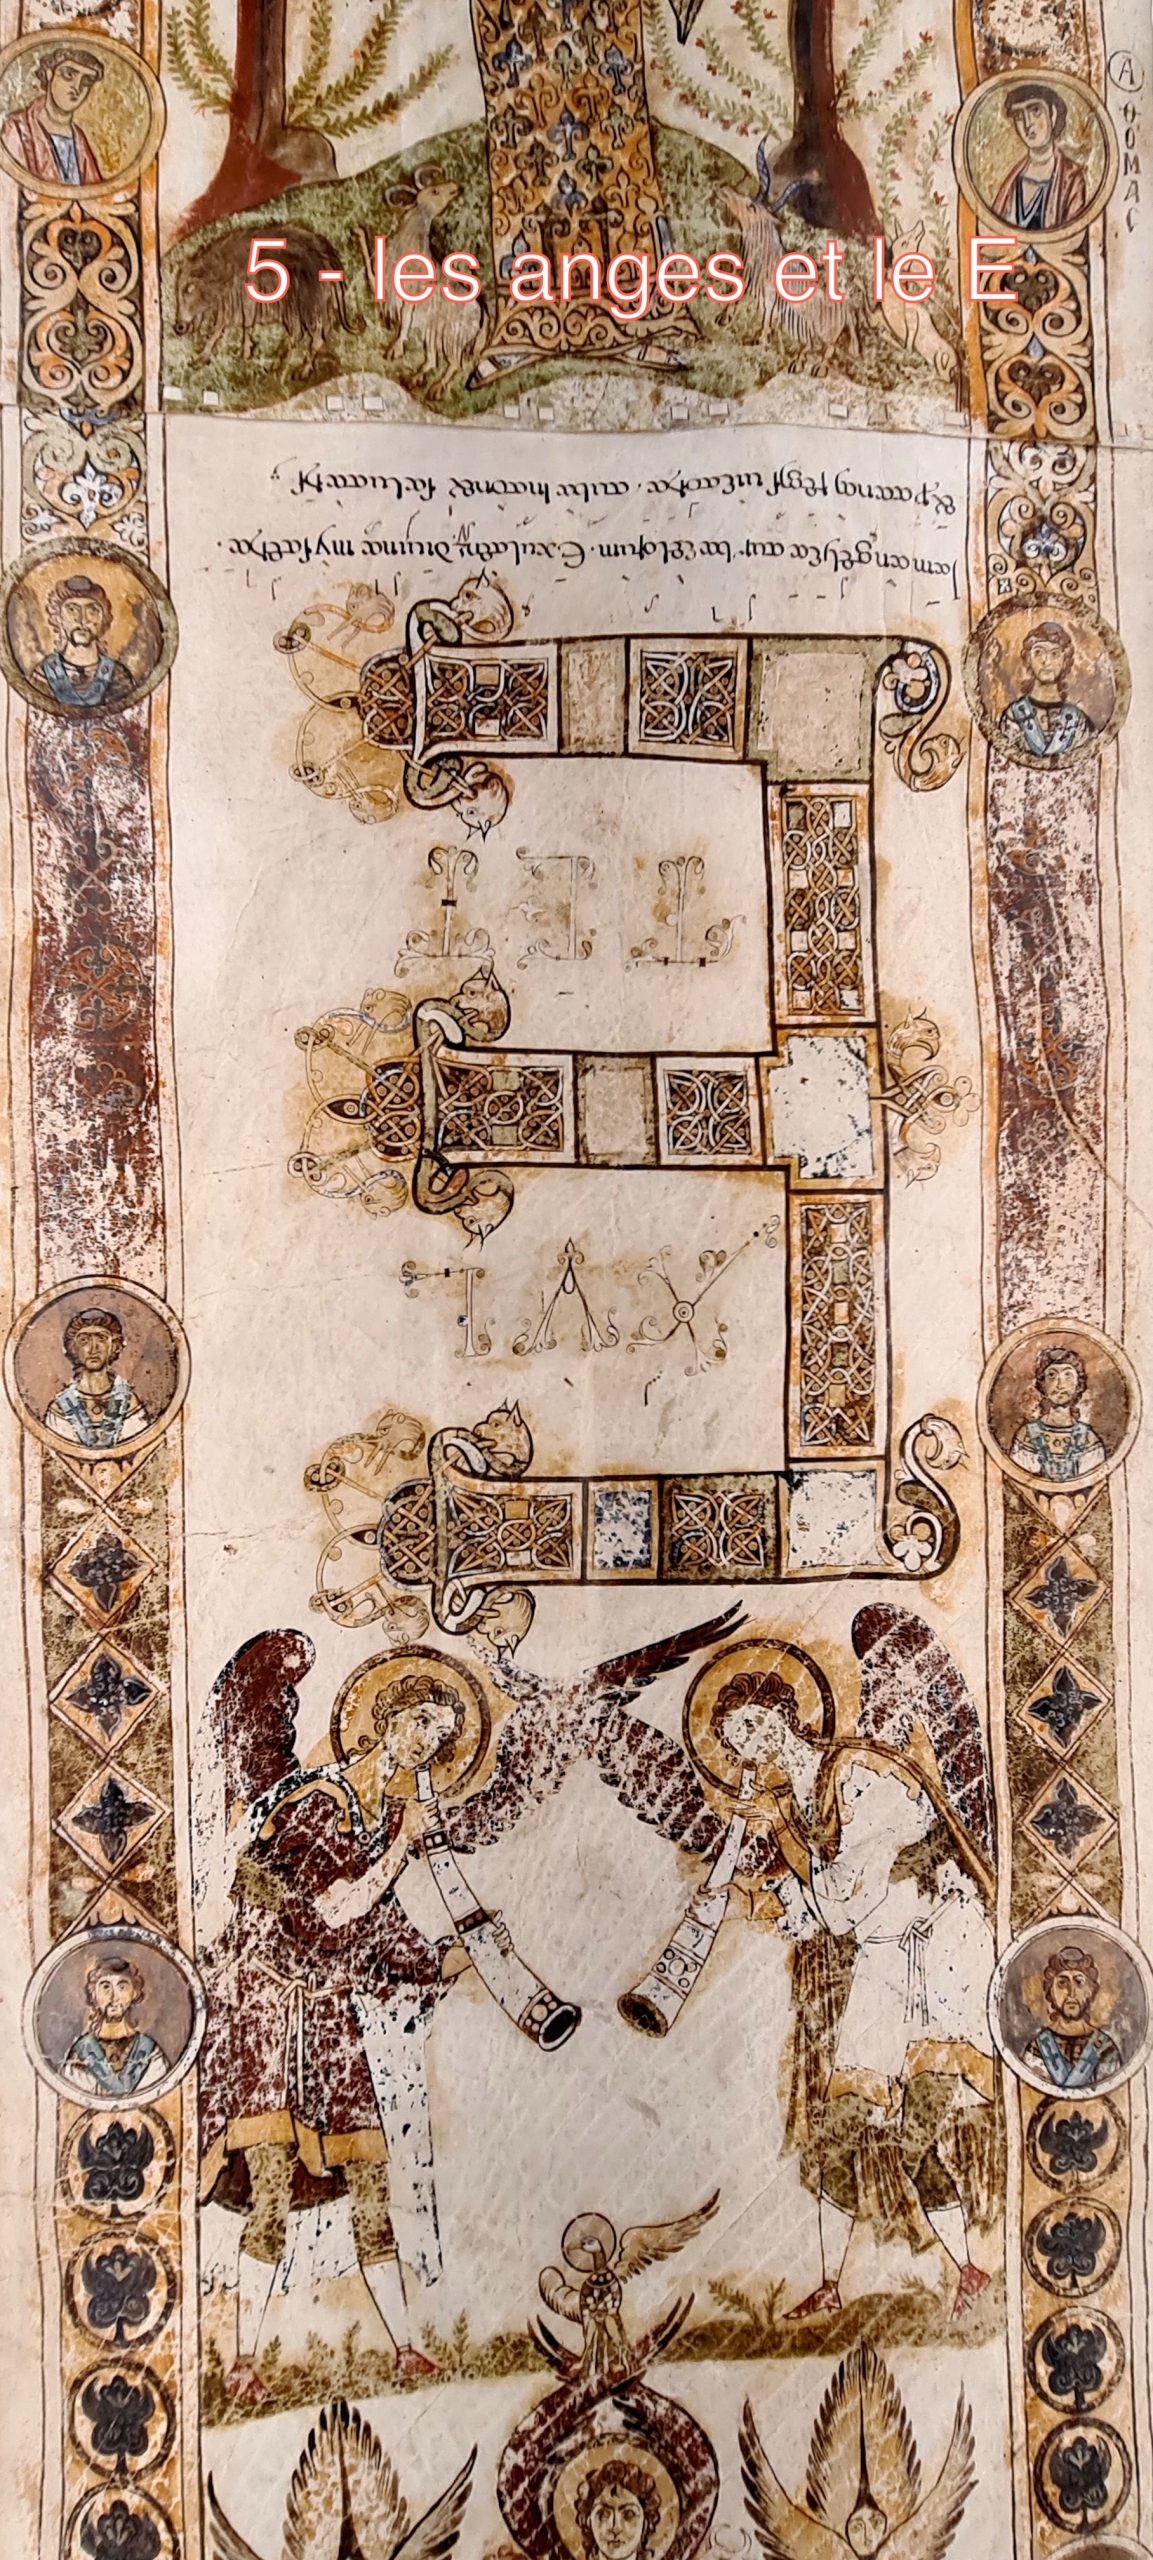 5 - les anges et le E
Ⓐ ΘΟΜΑC
E
XVL
TET
Iam angelica turba celorum. Exultent divina mysteria.
& p tanti regis victoria. tuba intonet salutaris